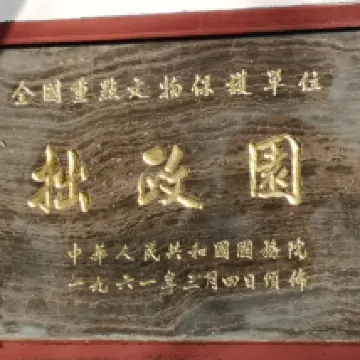 全國重點文物保護單位
拙政園
中華人民共和國國務院
一九六一年三月四日頒佈